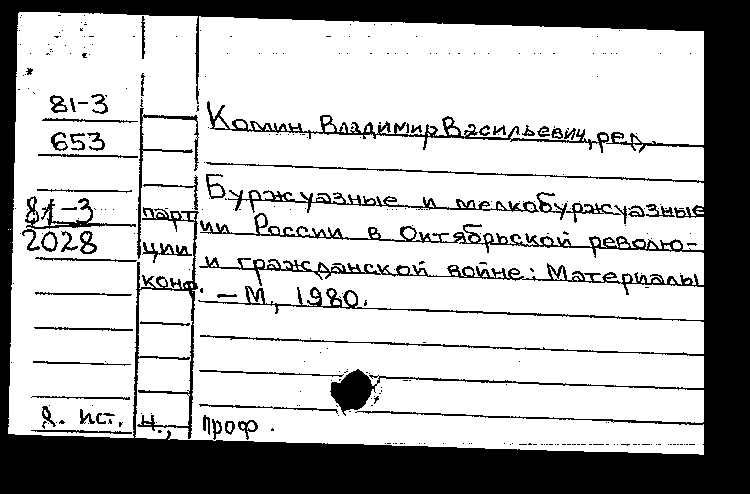 81-3
653
Комин, Владимир Васильевич, ред.
Буржуазные и мелкобуржуазные
81-3 парт ии России в Октябрьской револю-
2028 ции и гражданской войне: Материалы
конф. – М., 1980.
д. ист. н., проф.